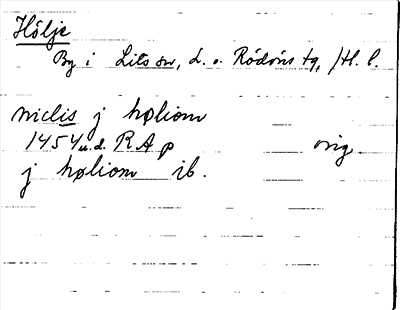 Hölje
By i Lits sn, L. o. Rödöns tg, Jtl. l.
niclis j høliom
1454 u.d. RAp orig.
j høliom ib.